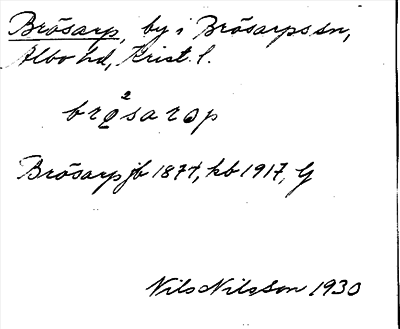 Brösarp, by i Brösarps sn,
Albo hd, Krist. l.
brö²sarap
Brösarp jb 1874, kb 1917, G
Nils Nilsson 1930